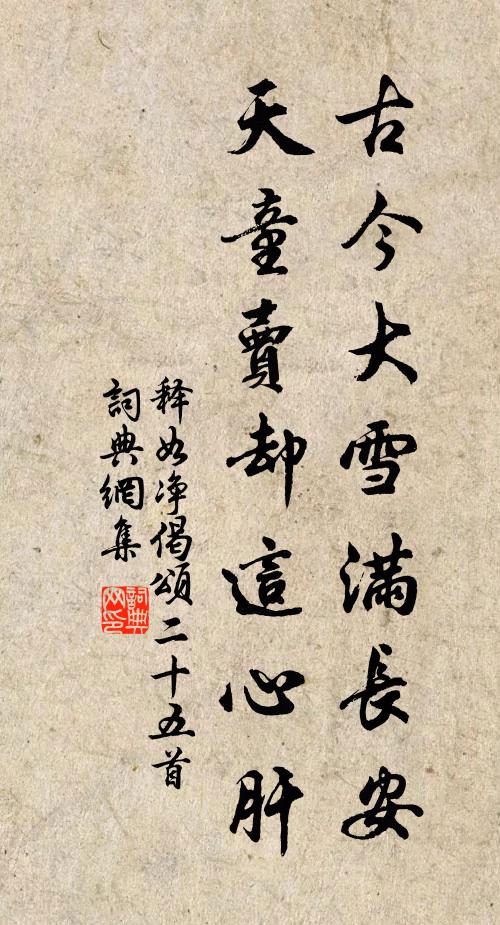 古今大雪滿長安
天童賣却這心肝
释如净偈頌二十五首
詞典網集
詞典网印